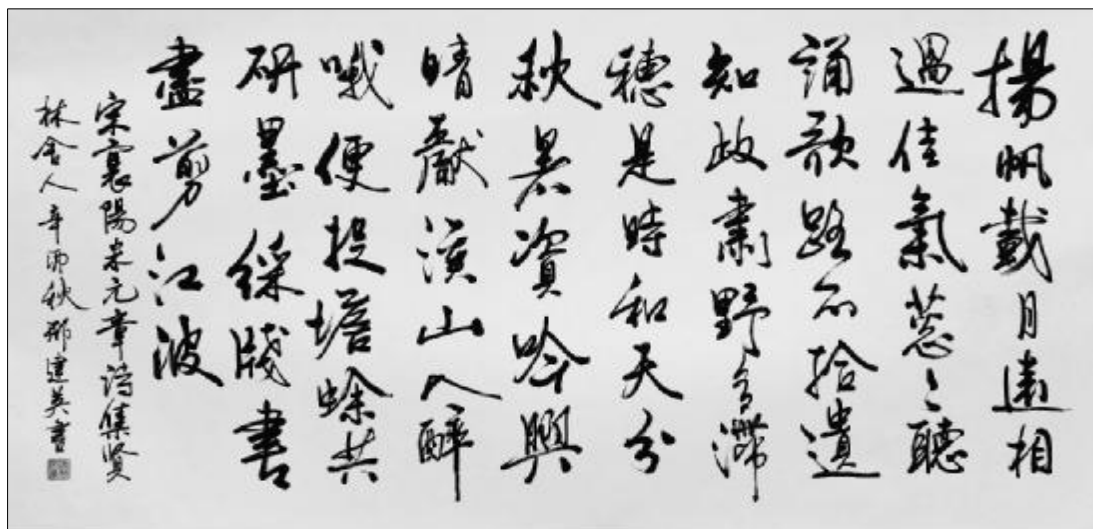 揚帆載月遠相
過佳氣蔥々聽
誦歌路不拾遺
知政肅野多滯
穗是時和天分
秋暑資吟興
晴獻溪山入醉
哦便捉蟾蜍共
研墨綵牋書
盡剪江波
宋襄陽米元章詩集賢
林舍人辛秋建英書